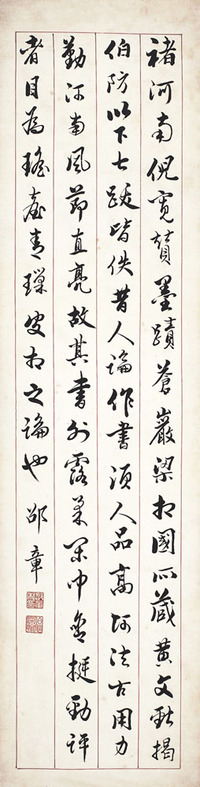 褚河南倪寬贊墨蹟蒼巖梁相國所藏黃文獻揭
伯防以下七跋皆佚昔人論作書須人品高師法古用力
勤河南風節直亮故其書外露柔閒中含挺勁評
者目為瑤臺青璅皮相之論也 邵章